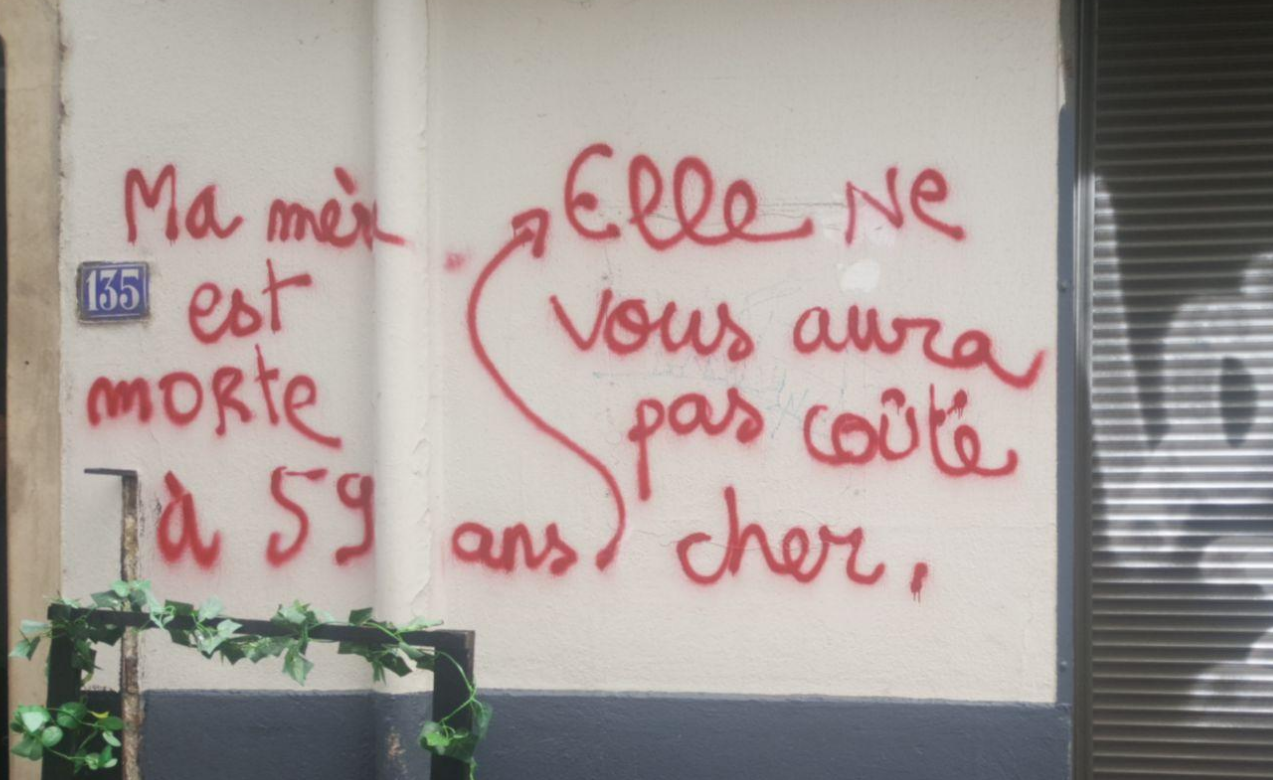 Ma mère
est
morte
à 59 ans
Elle Ne
vous aura
pas coûté
cher.
135